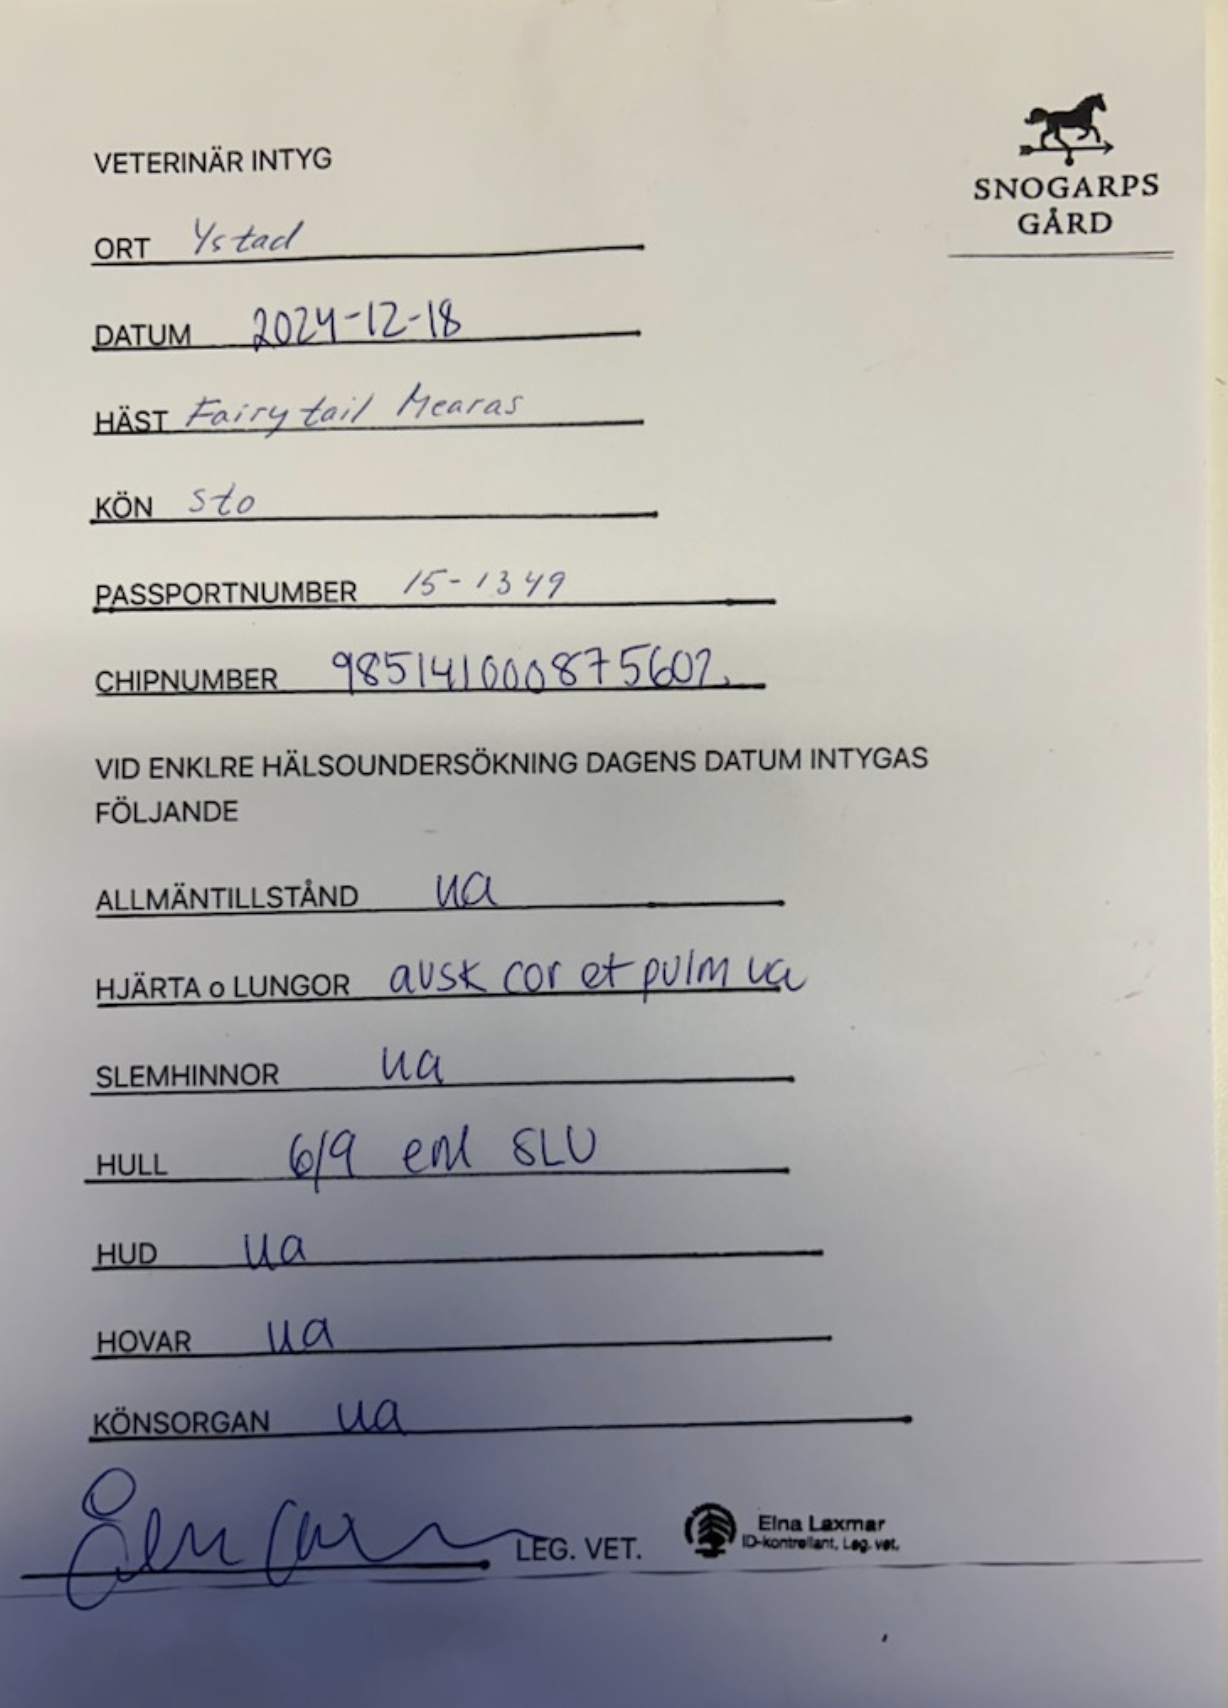 SNOGARPS
GÅRD
VETERINÄR INTYG
ORT Ystad
DATUM 2024-12-18
HÄST Fairytail Mearas
KÖN sto
PASSPORTNUMBER 15-1349
CHIPNUMBER 985141000875602.
VID ENKLRE HÄLSOUNDERSÖKNING DAGENS DATUM INTYGAS
FÖLJANDE
ALLMÄNTILLSTÅND ua
HJÄRTA o LUNGOR ausk cor et pulm ua
SLEMHINNOR ua
HULL 6/9 enl SLU
HUD ua
HOVAR ua
KÖNSORGAN ua
LEG. VET. Elna Laxmar
ID-kontrollant, Leg. vet.